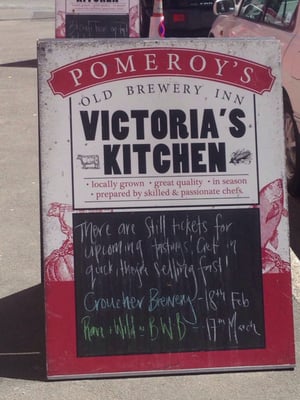 KITCHEN
POMEROY'S
OLD BREWERY INN
VICTORIA'S
KITCHEN
• locally grown • great quality • in season
• prepared by skilled & passionate chefs.
There are still tickets for
upcoming tastings. Get in
quick they're selling fast!
Croucher Brewery - 18th Feb
Rare + Wild BWB - 17th March